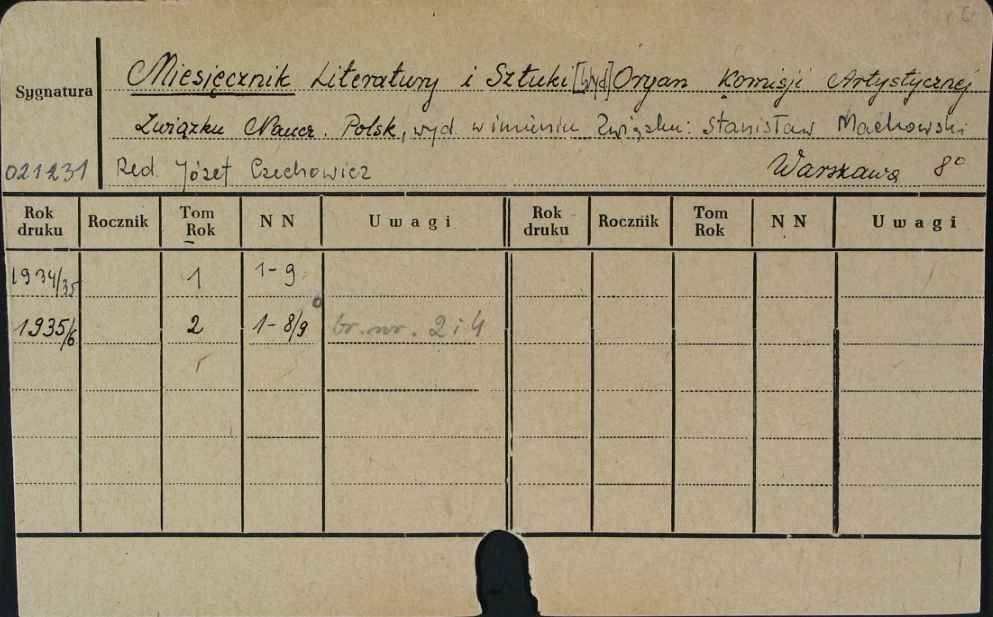 Sygnatura
Miesięcznik Literatury i Sztuki [Wyd] Organ Komisji Artystycznej
Związku Naucz. Polsk, wyd. w imieniu Związku: Stanisław Machowski
021231 Red. Józef Czechowicz Warszawa 8°
Rok druku Rocznik Tom Rok N N Uwagi Rok druku Rocznik Tom Rok N N Uwagi
1934/35 1 1-9
1935/6 2 1-8/9 br. nr. 2 i 4